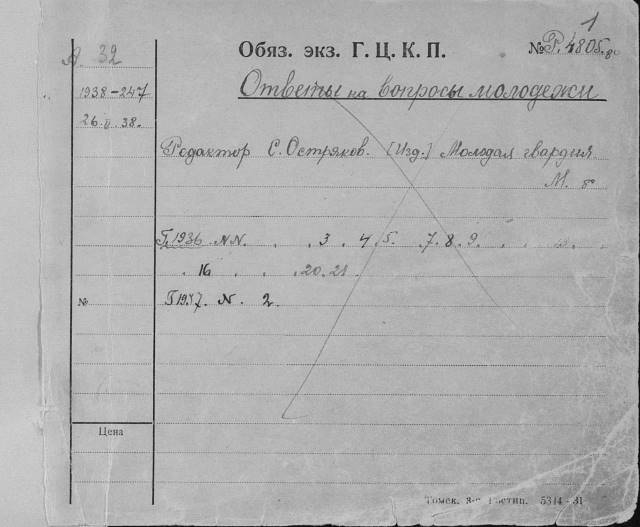 1
А 32
Обяз. экз. Г. Ц. К. П.
№ Р. 4805.
Ответы на вопросы молодежи
1938-247
26. 38.
Редактор С. Остряков. [Изд.] Молодая гвардия
М. 8°
Г. 1936 NN. . . 3 . 4 . 5. . 7. 8. 9 . . .
. 16 . . . 20. 21 .
№
Г 1937. N. 2.
Цена
Томск. Гостип. 5314-31